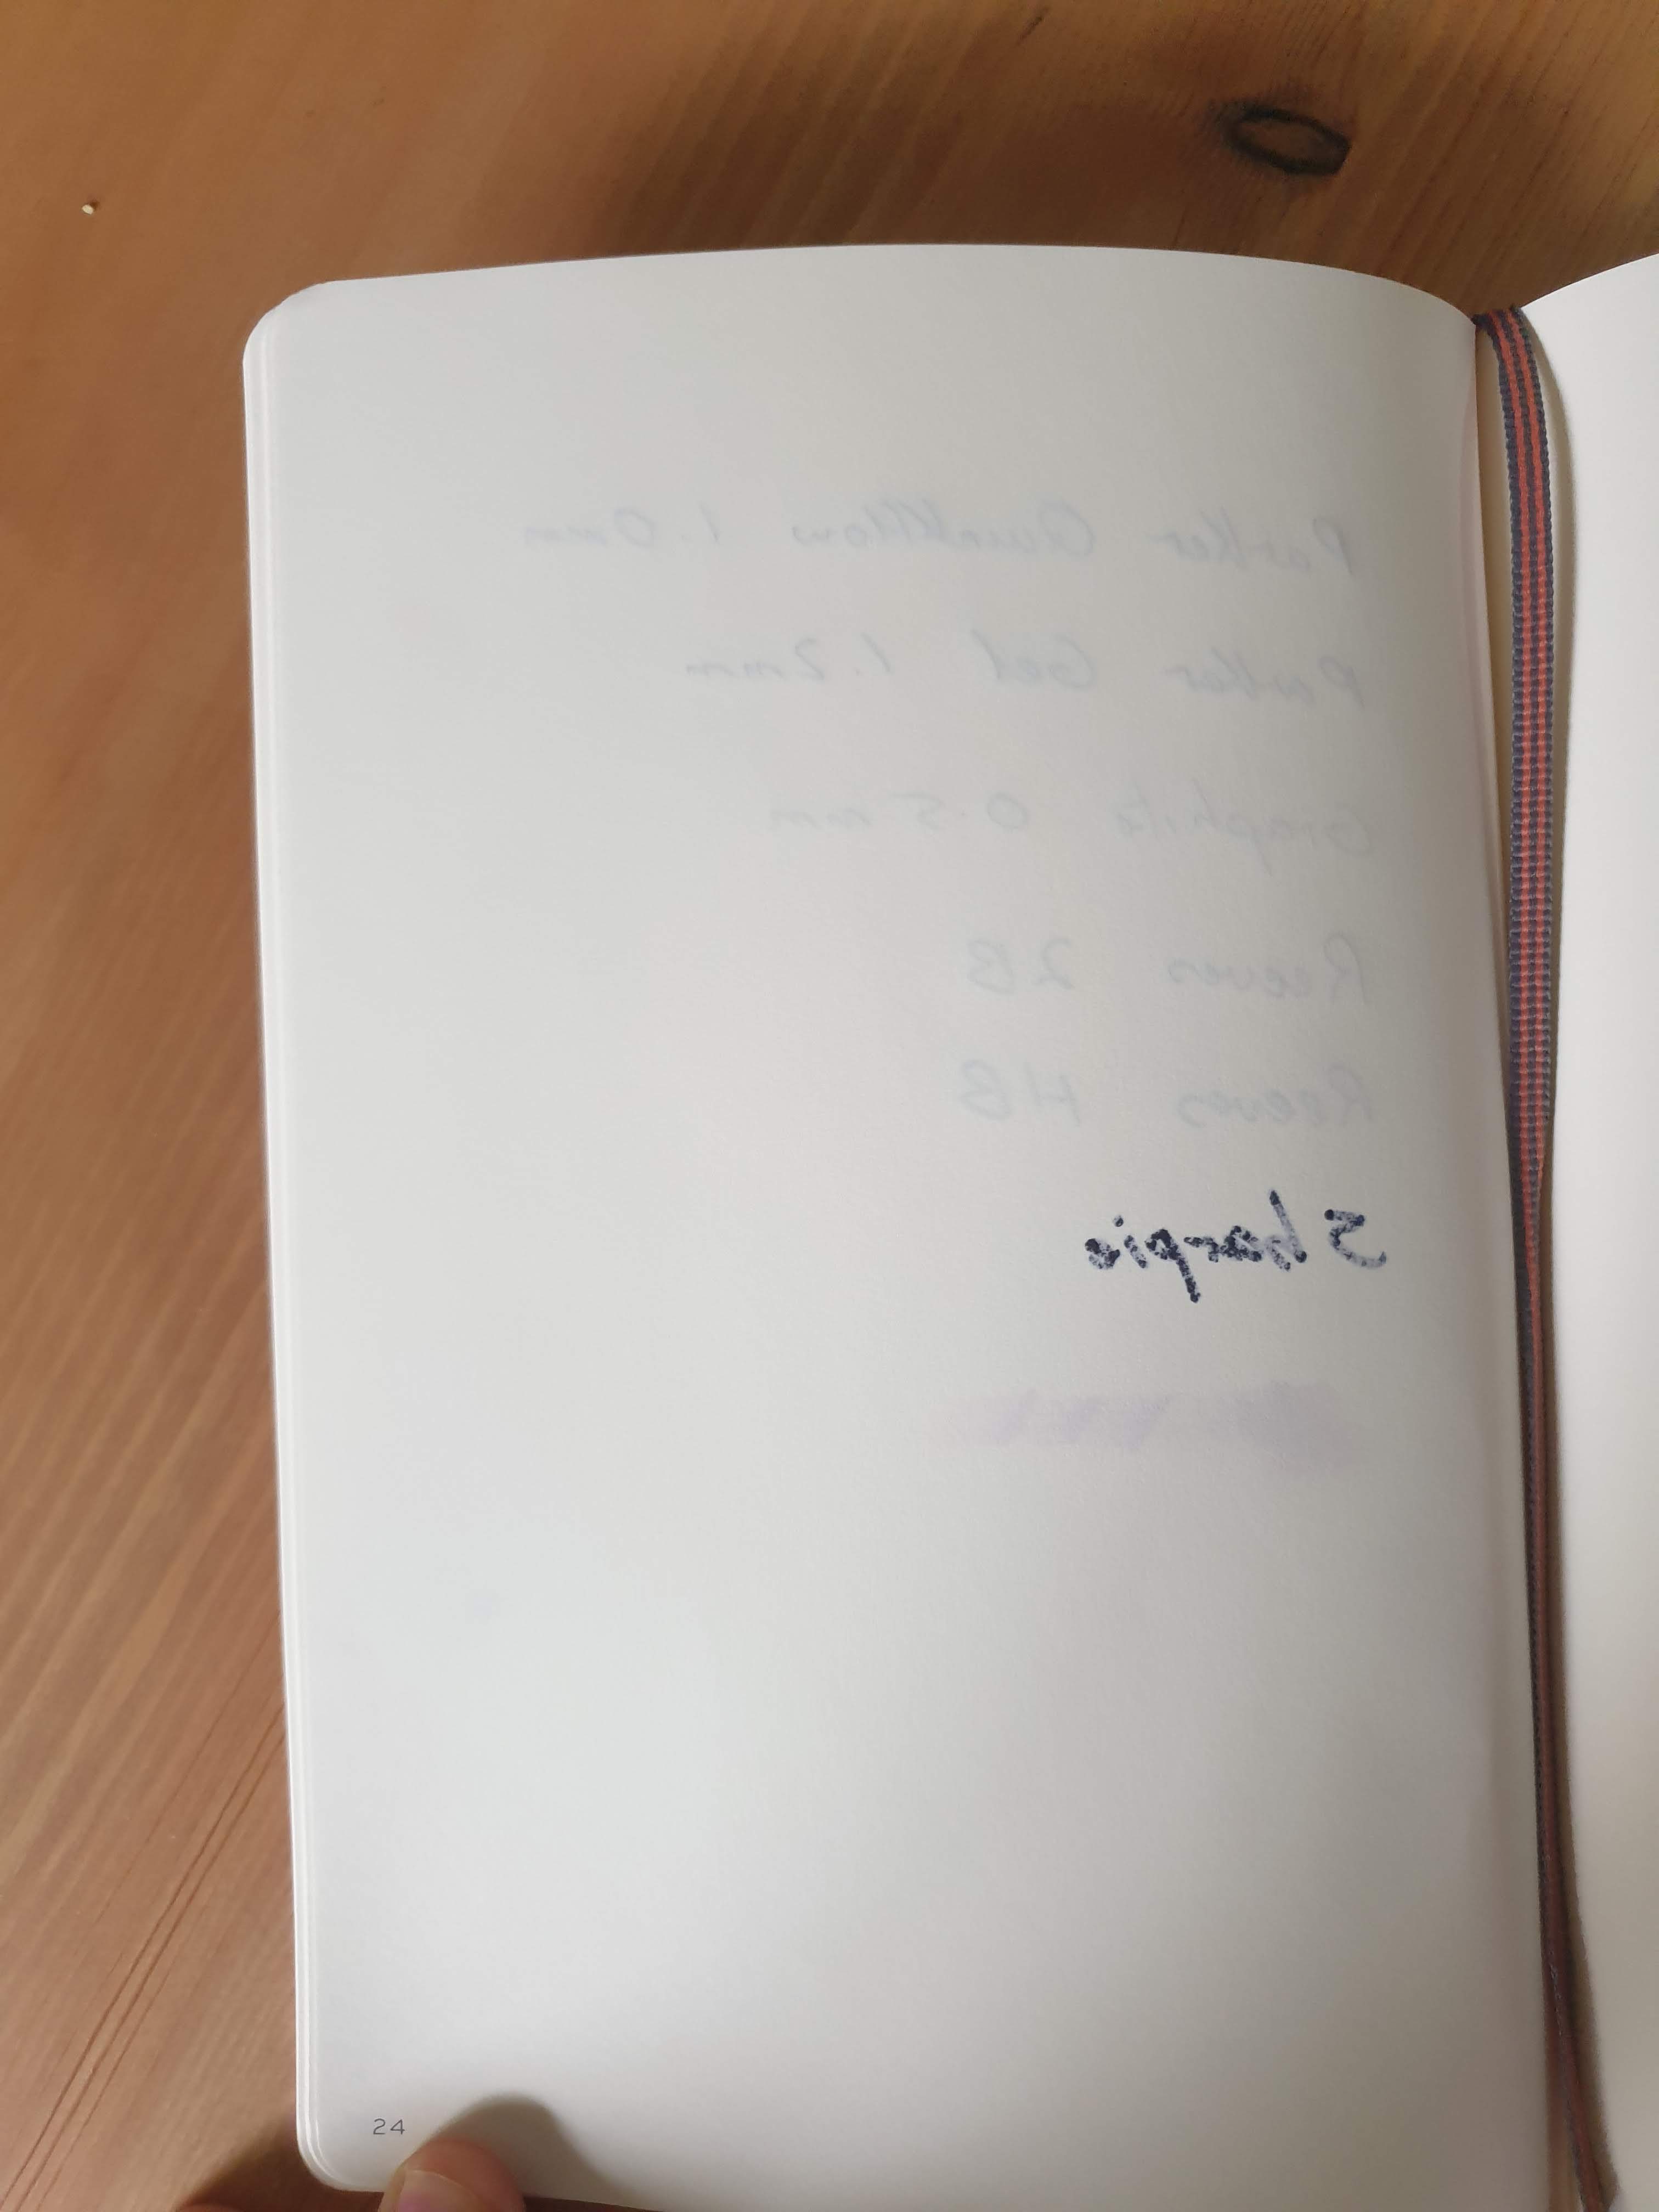 Parker Quinkflow 1.0mm
Parker Gel 1.2mm
Graphite 0.5mm
Reeves 2B
Reeves HB
Sharpie
24